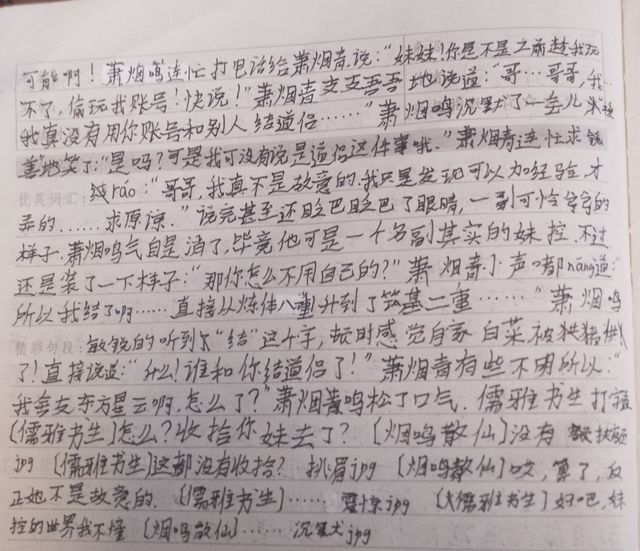 可能啊！萧烟鸣连忙打电话给萧烟青说：“妹妹！你是不是之前趁我玩
不了，偷玩我账号！快说！”萧烟青支支吾吾地说道：“哥…哥哥，我
我真没有用你账号和别人结道侣……”萧烟鸣沉默了一会儿
地笑了：“是吗？可是我可没有说是道侣这件事哦。”萧烟青连忙求
饶ráo：“哥哥，我真不是故意的.我只是发现可以加经验，才
优美词汇：
弄的……求原谅.”说完甚至还眨巴眨巴了眼睛，一副可怜兮兮的
样子.萧烟鸣气自是消了，毕竟他可是一个名副其实的妹控.不过
还是装了一下样子：“那你怎么不用自己的？”萧烟青小声嘟nāng道：“
所以我结了啊……直接从炼体八重升到了筑基二重……”萧烟鸣
精彩句段：敏锐的听到了“结”这个字，顿时感觉自家白菜被猪拱
了！直接说道：“什么！谁和你结道侣了！”萧烟青有些不用所以：“
我舍友东方星云啊，怎么了？”萧烟青鸣松了口气.儒雅书生打字道
〔儒雅书生〕怎么？收拾你妹去了？〔烟鸣散仙〕没有
jpg〔儒雅书生〕这都没有收拾？挑眉jpg〔烟鸣散仙〕哎，算了，反
正她不是故意的.〔儒雅书生〕……震惊jpg〔儒雅书生〕好吧，妹
控的世界我不懂〔烟鸣散仙〕……沉默jpg